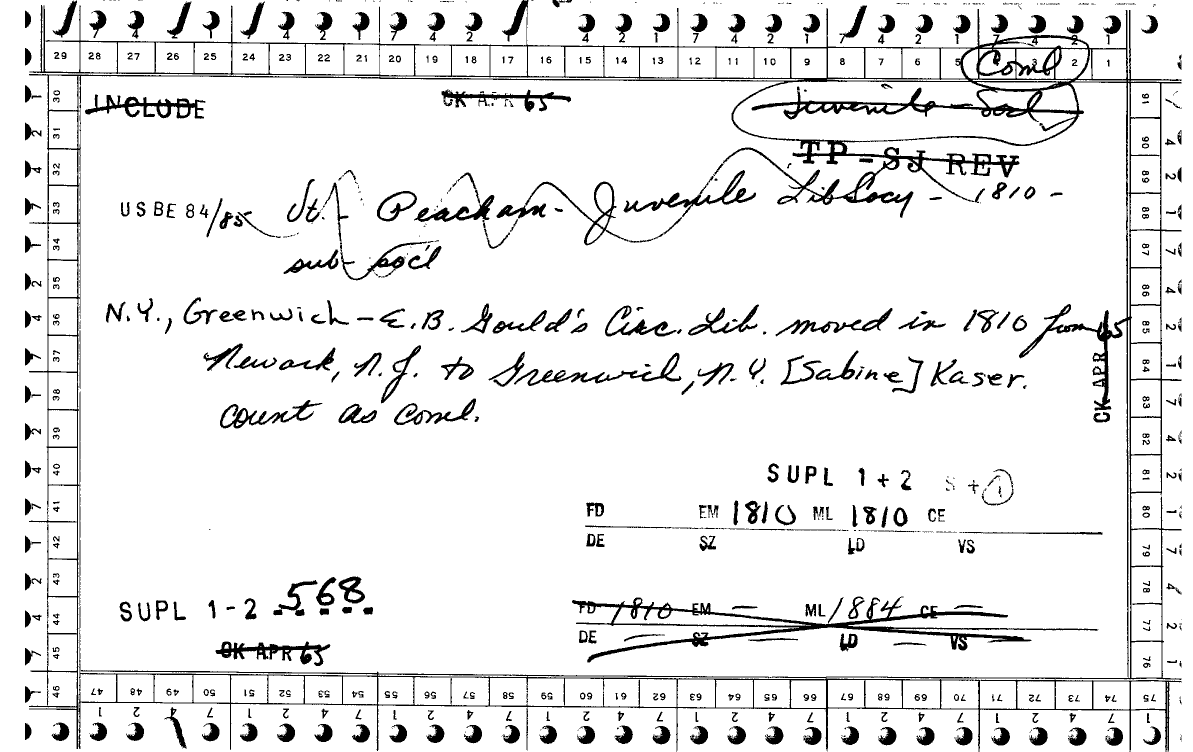 7 4 2 1 7 4 2 1 7 4 2 1 4 2 1 7 4 2 1 7 4 2 1 7 4 2 1
29 28 27 26 25 24 23 22 21 20 19 18 17 16 15 14 13 12 11 10 9 8 7 6 5 4 3 2 1
Coml
INCLUDE CK APR 65 Juvenile - Socl
TP - SJ REV
USBE 84/85 Vt. - Peacham - Juvenile Lib Socy - 1810 -
sub - soc'l
N.Y., Greenwich - E.B. Gould's Circ. Lib. moved in 1810 from
Newark, N.J. to Greenwich, N.Y. [Sabine] Kaser.
count as coml.
CK APR 65
SUPL 1 + 2 S + 1
FD EM 1810 ML 1810 CE
DE SZ LD VS
SUPL 1 - 2 568
FD 1810 EM — ML 1884 CE —
DE — SZ — LD — VS —
CK APR 65
30 31 32 33 34 35 36 37 38 39 40 41 42 43 44 45 46
91 90 89 88 87 86 85 84 83 82 81 80 79 78 77 76
47 48 49 50 51 52 53 54 55 56 57 58 59 60 61 62 63 64 65 66 67 68 69 70 71 72 73 74 75